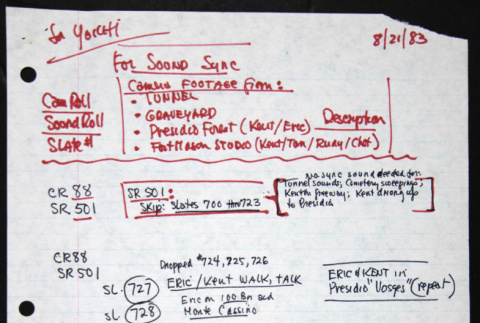 8/21/83
For SOUND SYNC
Camera FOOTAGE from:
• TUNNEL
• GRAVEYARD
• Presidio Forest (Kent/Eric)
• Fort Mason STUDIO (Kent/Tom/Rudy/Chet)
Cam Roll
Sound Roll
SLATE #
Description
CR 88
SR 501
SR 501:
SKIP: Slates 700 thru 723
No sync sound needed for:
Tunnel sounds, Cemetery sweepings,
Kent on freeway; Kent driving up
to Presidio
CR88
SR 501
Dropped #724, 725, 726
SL. 727 ERIC/Kent WALK, TALK
SL. 728 Eric on 100 Bn and
Monte Cassino
ERIC & KENT in
Presidio "Vosges" (repeat)